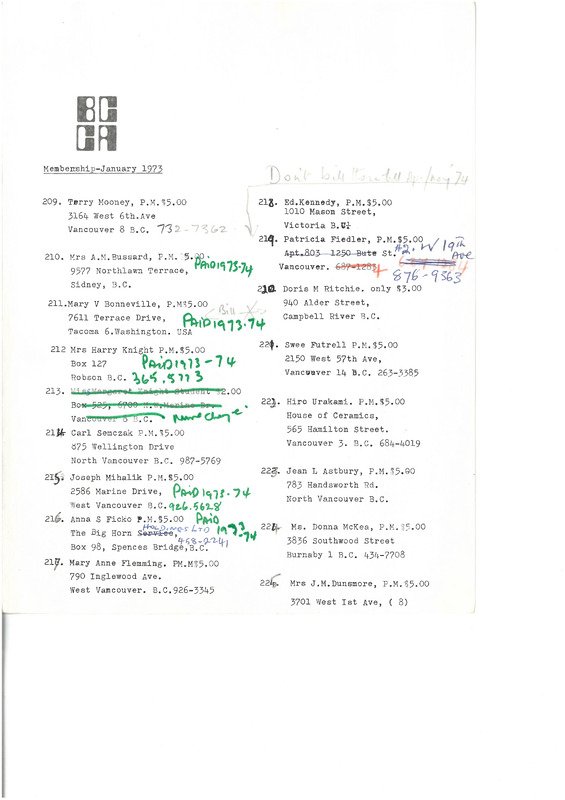 BC
CA
Membenship-January 1973
Don't bill
74
209. Terry Mooney, P.M.$5.00
3164 West 6th.Ave
Vancouver 8 B.C. 732-7362
210. Mrs A.M.Bussard, P.M.$5.00.
9577 Northlawn Terrace, PAID 1973.74
Sidney, B.C.
211.Mary V Bonneville, P.M$5.00
7611 Terrace Drive, Bill PAID 1973.74
Tacoma 6.Washington. USA
212 Mrs Harry Knight P.M.$5.00
Box 127 PAID 1973-74
Robson B.C. 365.5773
213. Miss Margaret Knight Student $2.00
Box 525, 6700 N.W.Marine Dr.
Vancouver 8 B.C. name change
214 Carl Semczak P.M.$5.00
875 Wellington Drive
North Vancouver B.C. 987-5769
215. Joseph Mihalik P.M.$5.00
2586 Marine Drive, PAID 1973.74
West Vancouver B.C. 926.5628
216. Anna S Ficko P.M.$5.00 PAID 1973-74
The Big Horn Service, HOLDINGS LTD
Box 98, Spences Bridge,B.C. 458-2241
217. Mary Anne Flemming. PM.M$5.00
790 Inglewood Ave.
West Vancouver. B.C.926-3345
218. Ed.Kennedy, P.M.$5.00
1010 Mason Street,
Victoria B.C.
219. Patricia Fiedler, P.M.$5.00
Apt.803 1250 Bute St. W 19th Ave
Vancouver. 687-1283 876-9363
Doris M Ritchie. only $3.00
940 Alder Street,
Campbell River B.C.
Swee Futrell P.M.$5.00
2150 West 57th Ave,
Vancouver 14 B.C. 263-3385
Hiro Urakami. P.M.$5.00
House of Ceramics,
565 Hamilton Street.
Vancouver 3. B.C. 684-4019
223. Jean L Astbury, P.M.$5.00
783 Handsworth Rd.
North Vancouver B.C.
224. Ms. Donna McKea, P.M.$5.00
3836 Southwood Street
Burnaby 1 B.C. 434-7708
Mrs J.M.Dunsmore, P.M.$5.00
3701 West Ist Ave, ( 8)